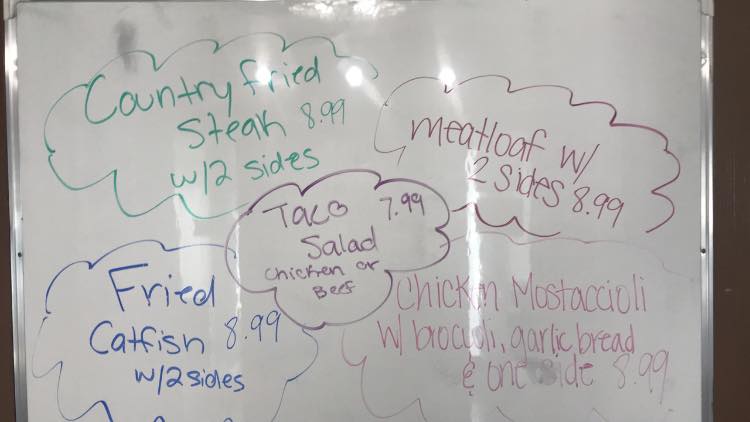 Country Fried
Steak 8.99
w/2 sides
meatloaf w/
2 sides 8.99
Taco 7.99
Salad
chicken or
Beef
Fried
Catfish 8.99
w/2 sides
Chickn Mostaccioli
w/ broccoli, garlic bread
& one side 8.99